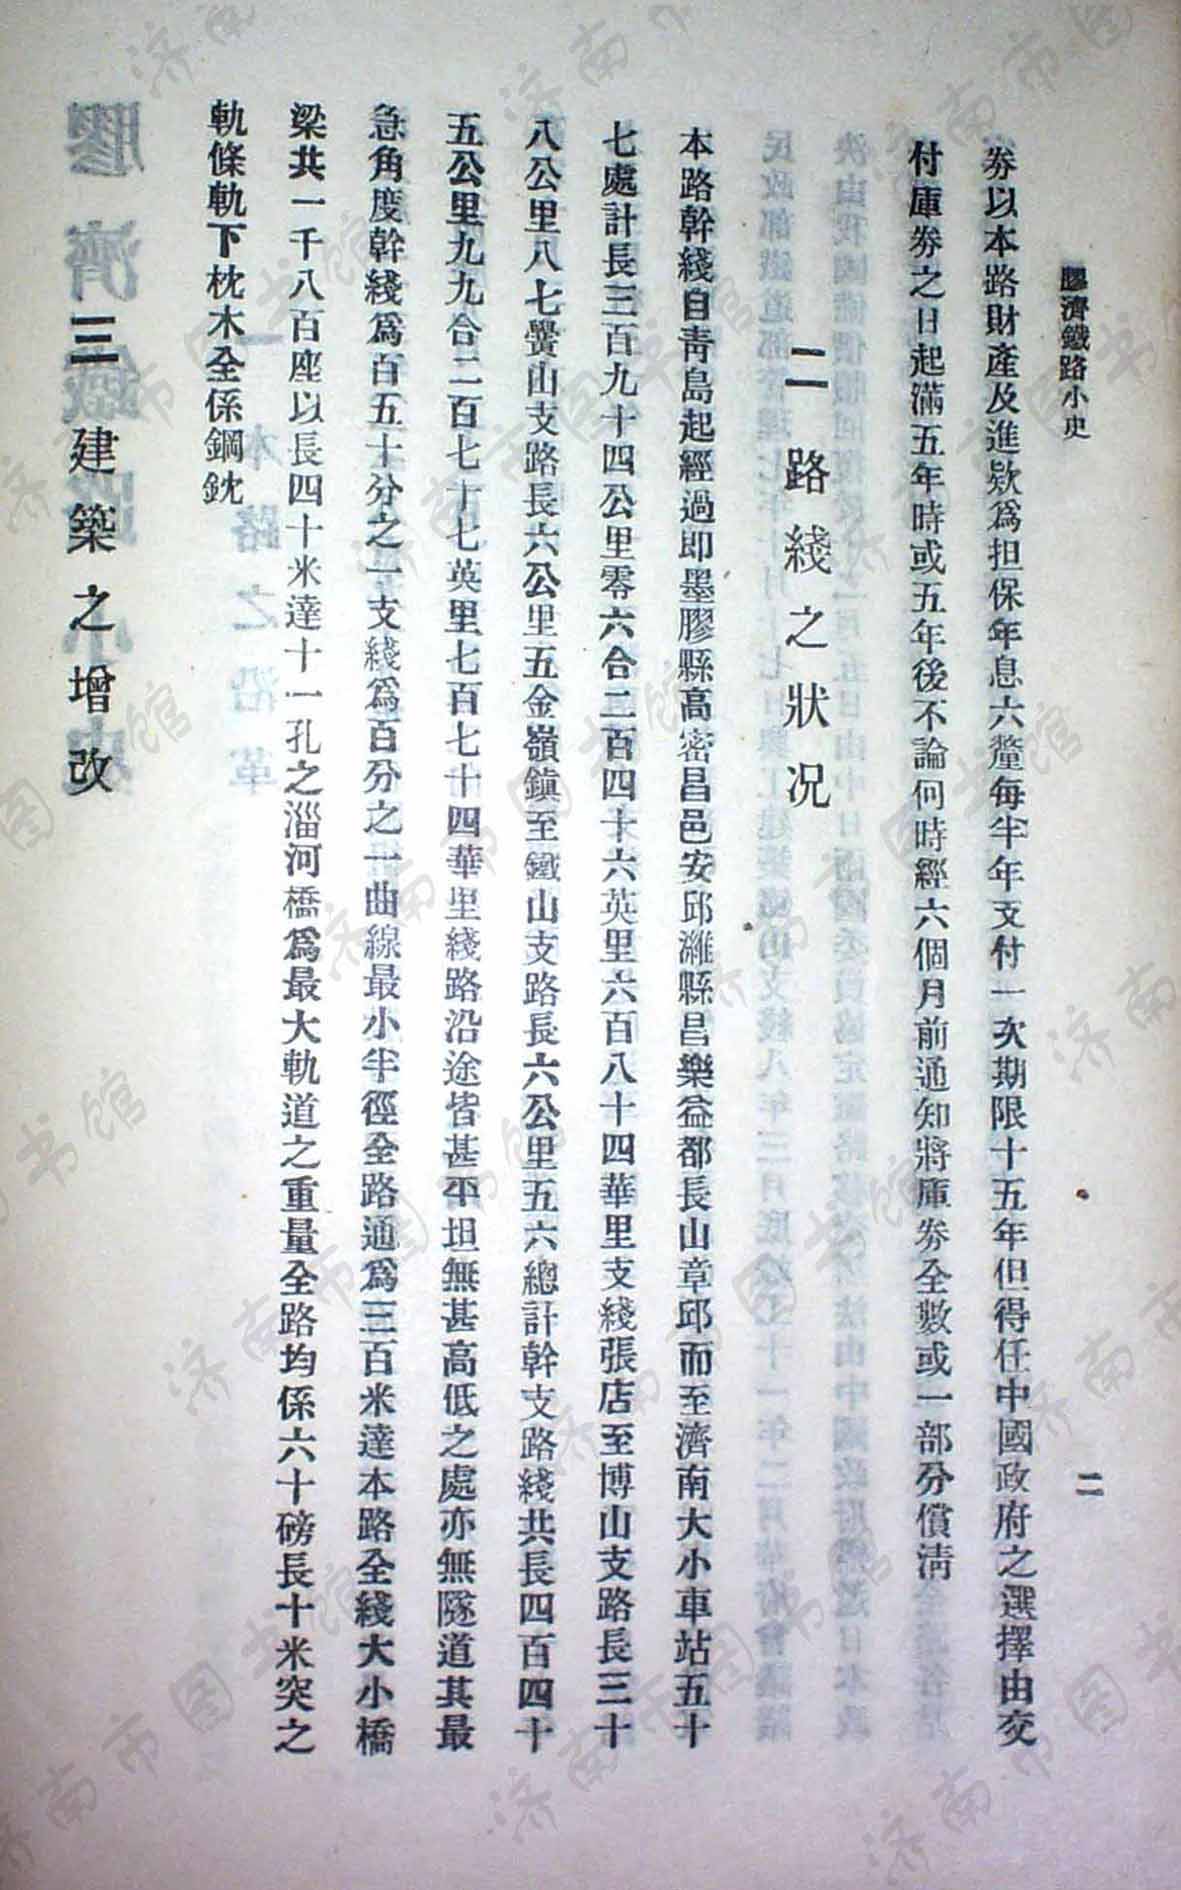 膠濟鐵路小史
二
劵以本路財產及進欵爲担保年息六釐每半年支付一次期限十五年但得任中國政府之選擇由交
付庫劵之日起滿五年時或五年後不論何時經六個月前通知將庫劵全數或一部分償清
二 路綫之狀况
本路幹綫自靑島起經過即墨膠縣高密昌邑安邱濰縣昌樂益都長山章邱而至濟南大小車站五十
七處計長三百九十四公里零六合二百四十六英里六百八十四華里支綫張店至博山支路長三十
八公里八七黌山支路長六公里五金嶺鎮至鐵山支路長六公里五六總計幹支路綫共長四百四十
五公里九九合二百七十七英里七百七十四華里綫路沿途皆甚平坦無甚高低之處亦無隧道其最
急角度幹綫爲百五十分之一支綫爲百分之一曲線最小半徑全路通爲三百米達本路全綫大小橋
梁共一千八百座以長四十米達十一孔之淄河橋爲最大軌道之重量全路均係六十磅長十米突之
軌條軌下枕木全係鋼枕
三 建築之增改
济南市图书馆